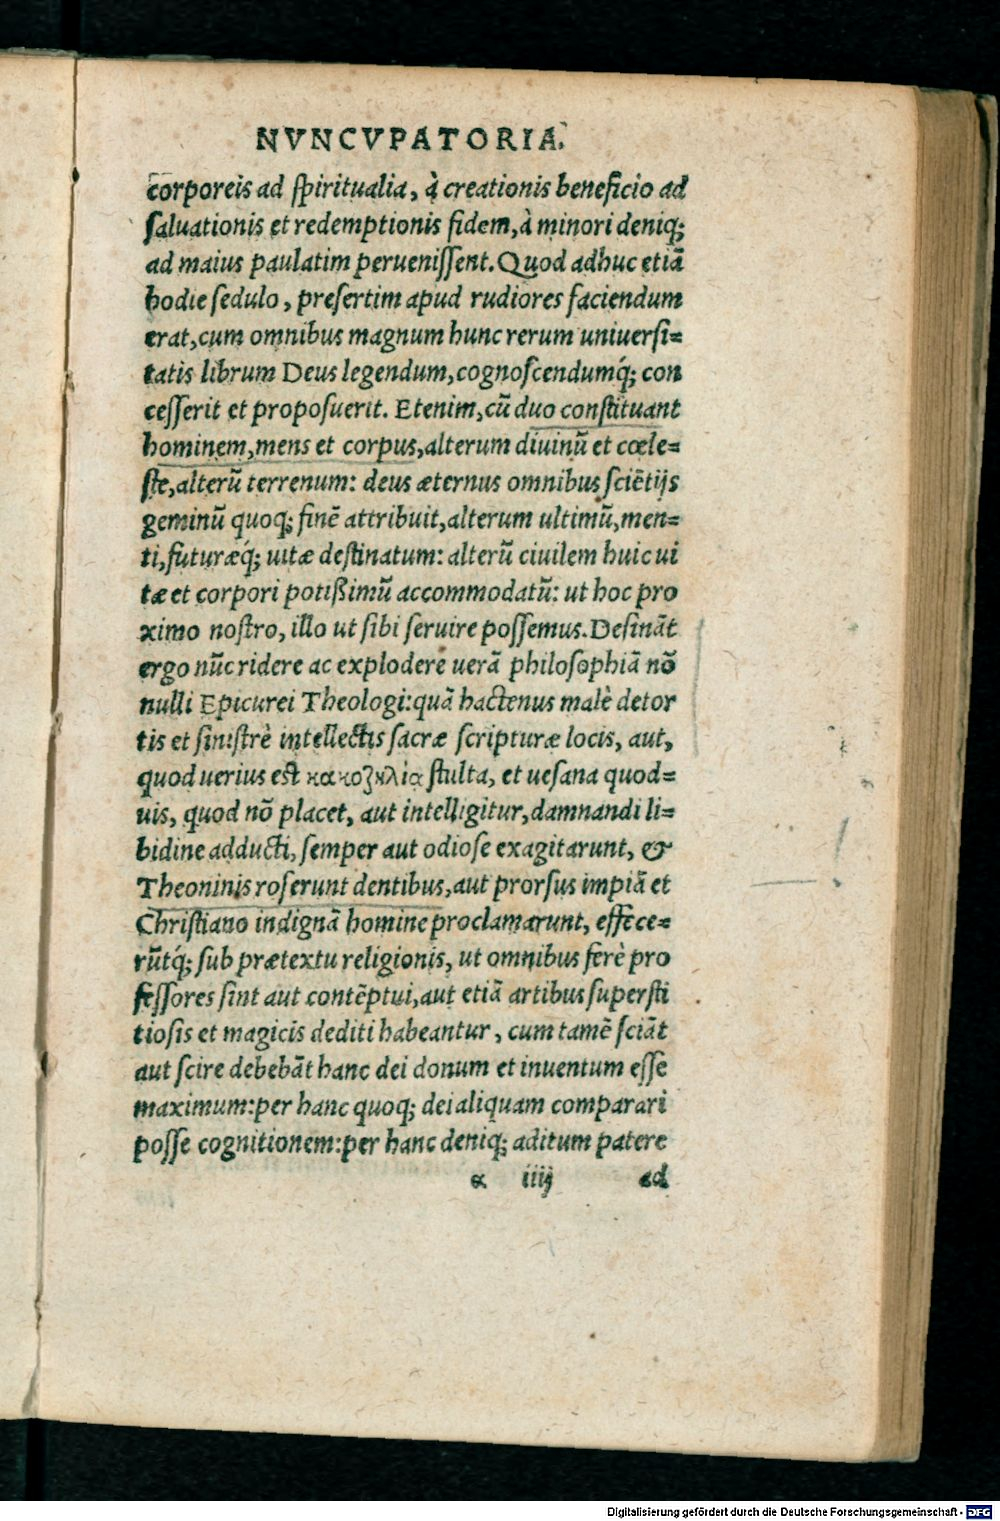 NVNCVPATORIA.
corporeis ad ſpiritualia, à creationis beneficio ad
ſaluationis et redemptionis fidem, à minori deniq;
ad maius paulatim perueniſſent. Quod adhuc etiã
hodie ſedulo, preſertim apud rudiores faciendum
erat, cum omnibus magnum hunc rerum uniuerſi=
tatis librum Deus legendum, cognoſcendumq́; con
ceſſerit et propoſuerit. Etenim, cũ duo conſtituant
hominem, mens et corpus, alterum diuinũ et cœle=
ſte, alterũ terrenum: deus æternus omnibus ſciẽtijs
geminũ quoq; finẽ attribuit, alterum ultimũ, men=
ti, futuræq́; uitæ deſtinatum: alterũ ciuilem huic ui
tæ et corpori potißimũ accommodatũ: ut hoc pro
ximo noſtro, illo ut ſibi ſeruire poſſemus. Deſinãt
ergo nũc ridere ac explodere uerã philoſophiã nõ
nulli Epicurei Theologi: quã hactenus malè detor
tis et ſiniſtrè intellectis ſacræ ſcripturæ locis, aut,
quod uerius eſt κακοζηλία ſtulta, et ueſana quod=
uis, quod nõ placet, aut intelligitur, damnandi li=
bidine adducti, ſemper aut odioſe exagitarunt, &
Theoninis roſerunt dentibus, aut prorſus impiã et
Chriſtiano indignã homine proclamarunt, effece=
rũtq́; ſub prætextu religionis, ut omnibus ferè pro
feſſores ſint aut contẽptui, aut etiã artibus ſuperſti
tioſis et magicis dediti habeantur, cum tamẽ ſciãt
aut ſcire debebãt hanc dei donum et inuentum eſſe
maximum: per hanc quoq; dei aliquam comparari
poſſe cognitionem: per hanc deniq; aditum patere
α iiij ad
Digitalisierung gefördert durch die Deutsche Forschungsgemeinschaft - DFG